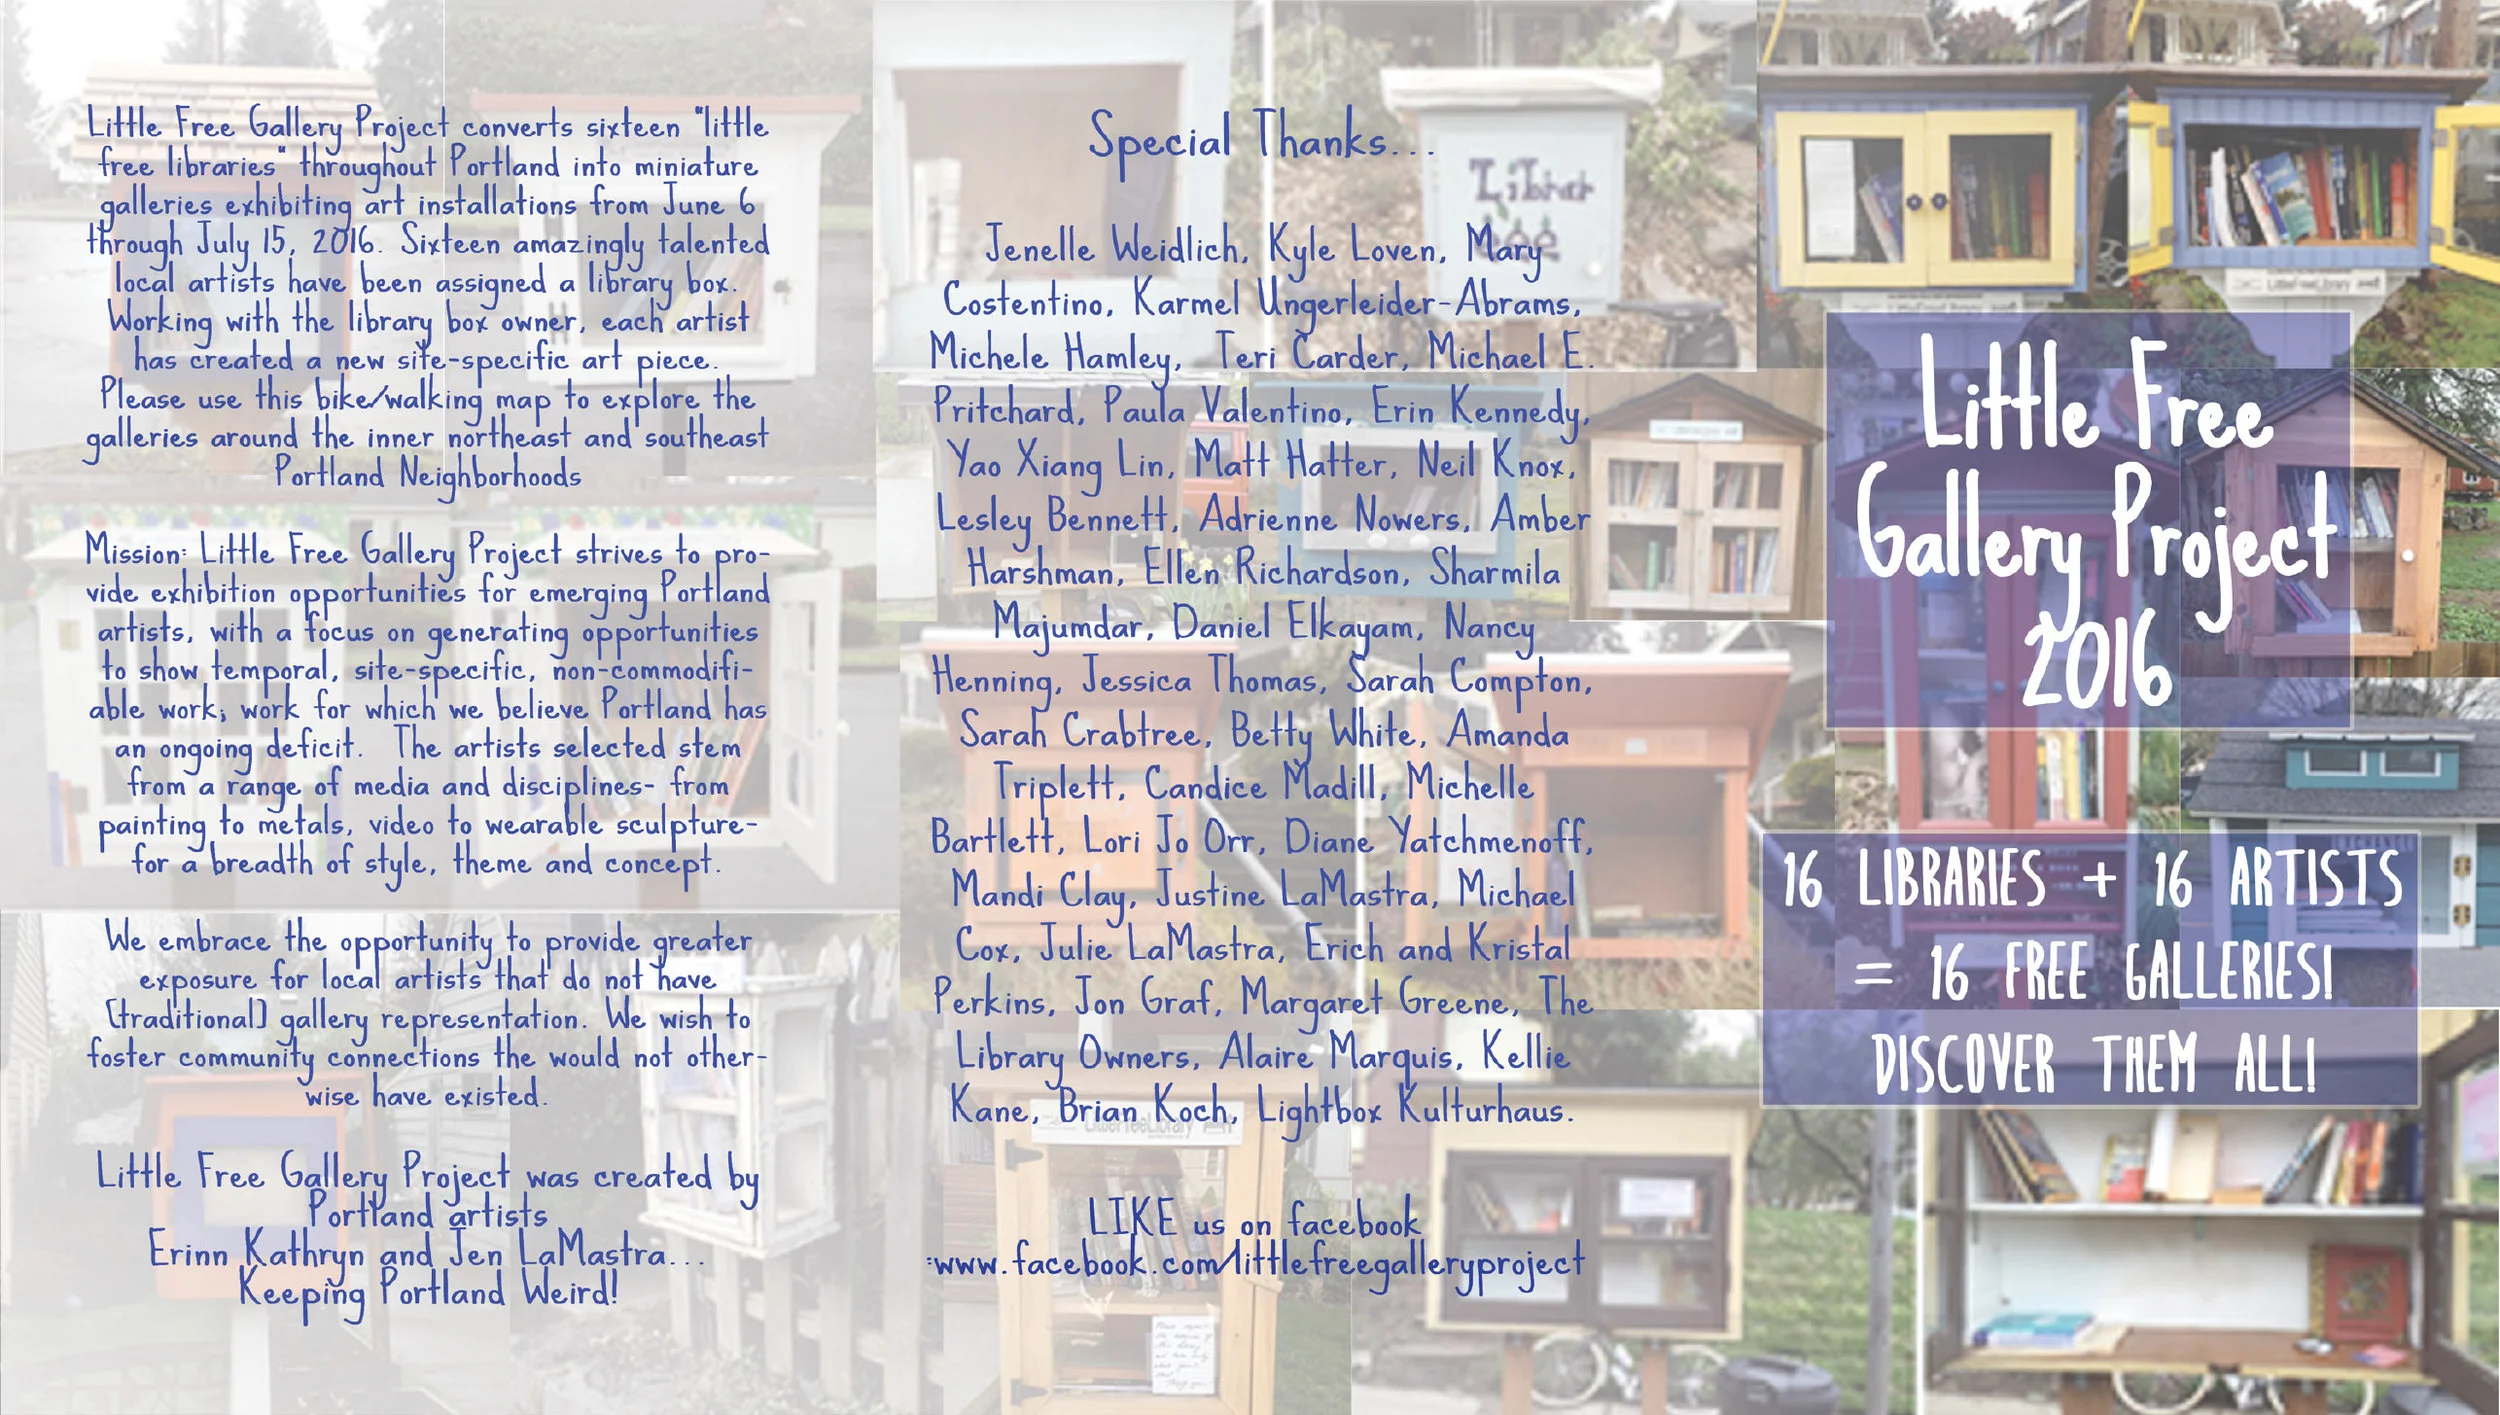 Little Free Gallery Project converts sixteen "little
free libraries" throughout Portland into miniature
galleries exhibiting art installations from June 6
through July 15, 2016. Sixteen amazingly talented
local artists have been assigned a library box.
Working with the library box owner, each artist
has created a new site-specific art piece.
Please use this bike/walking map to explore the
galleries around the inner northeast and southeast
Portland Neighborhoods
Mission: Little Free Gallery Project strives to pro-
vide exhibition opportunities for emerging Portland
artists, with a focus on generating opportunities
to show temporal, site-specific, non-commodifi-
able work; work for which we believe Portland has
an ongoing deficit. The artists selected stem
from a range of media and disciplines- from
painting to metals, video to wearable sculpture-
for a breadth of style, theme and concept.
We embrace the opportunity to provide greater
exposure for local artists that do not have
(traditional) gallery representation. We wish to
foster community connections the would not other-
wise have existed.
Little Free Gallery Project was created by
Portland artists
Erinn Kathryn and Jen LaMastra...
Keeping Portland Weird!
Special Thanks...
Jenelle Weidlich, Kyle Loven, Mary
Costentino, Karmel Ungerleider-Abrams,
Michele Hamley, Teri Carder, Michael E.
Pritchard, Paula Valentino, Erin Kennedy,
Yao Xiang Lin, Matt Hatter, Neil Knox,
Lesley Bennett, Adrienne Nowers, Amber
Harshman, Ellen Richardson, Sharmila
Majumdar, Daniel Elkayam, Nancy
Henning, Jessica Thomas, Sarah Compton,
Sarah Crabtree, Betty White, Amanda
Triplett, Candice Madill, Michelle
Bartlett, Lori Jo Orr, Diane Yatchmenoff,
Mandi Clay, Justine LaMastra, Michael
Cox, Julie LaMastra, Erich and Kristal
Perkins, Jon Graf, Margaret Greene, The
Library Owners, Alaire Marquis, Kellie
Kane, Brian Koch, Lightbox Kulturhaus.
LittleFreeLibrary
LIKE us on facebook
:www.facebook.com/littlefreegalleryproject
LittleFreeLibrary
Little Free
Gallery Project
2016
16 LIBRARIES + 16 ARTISTS
= 16 FREE GALLERIES!
DISCOVER THEM ALL!